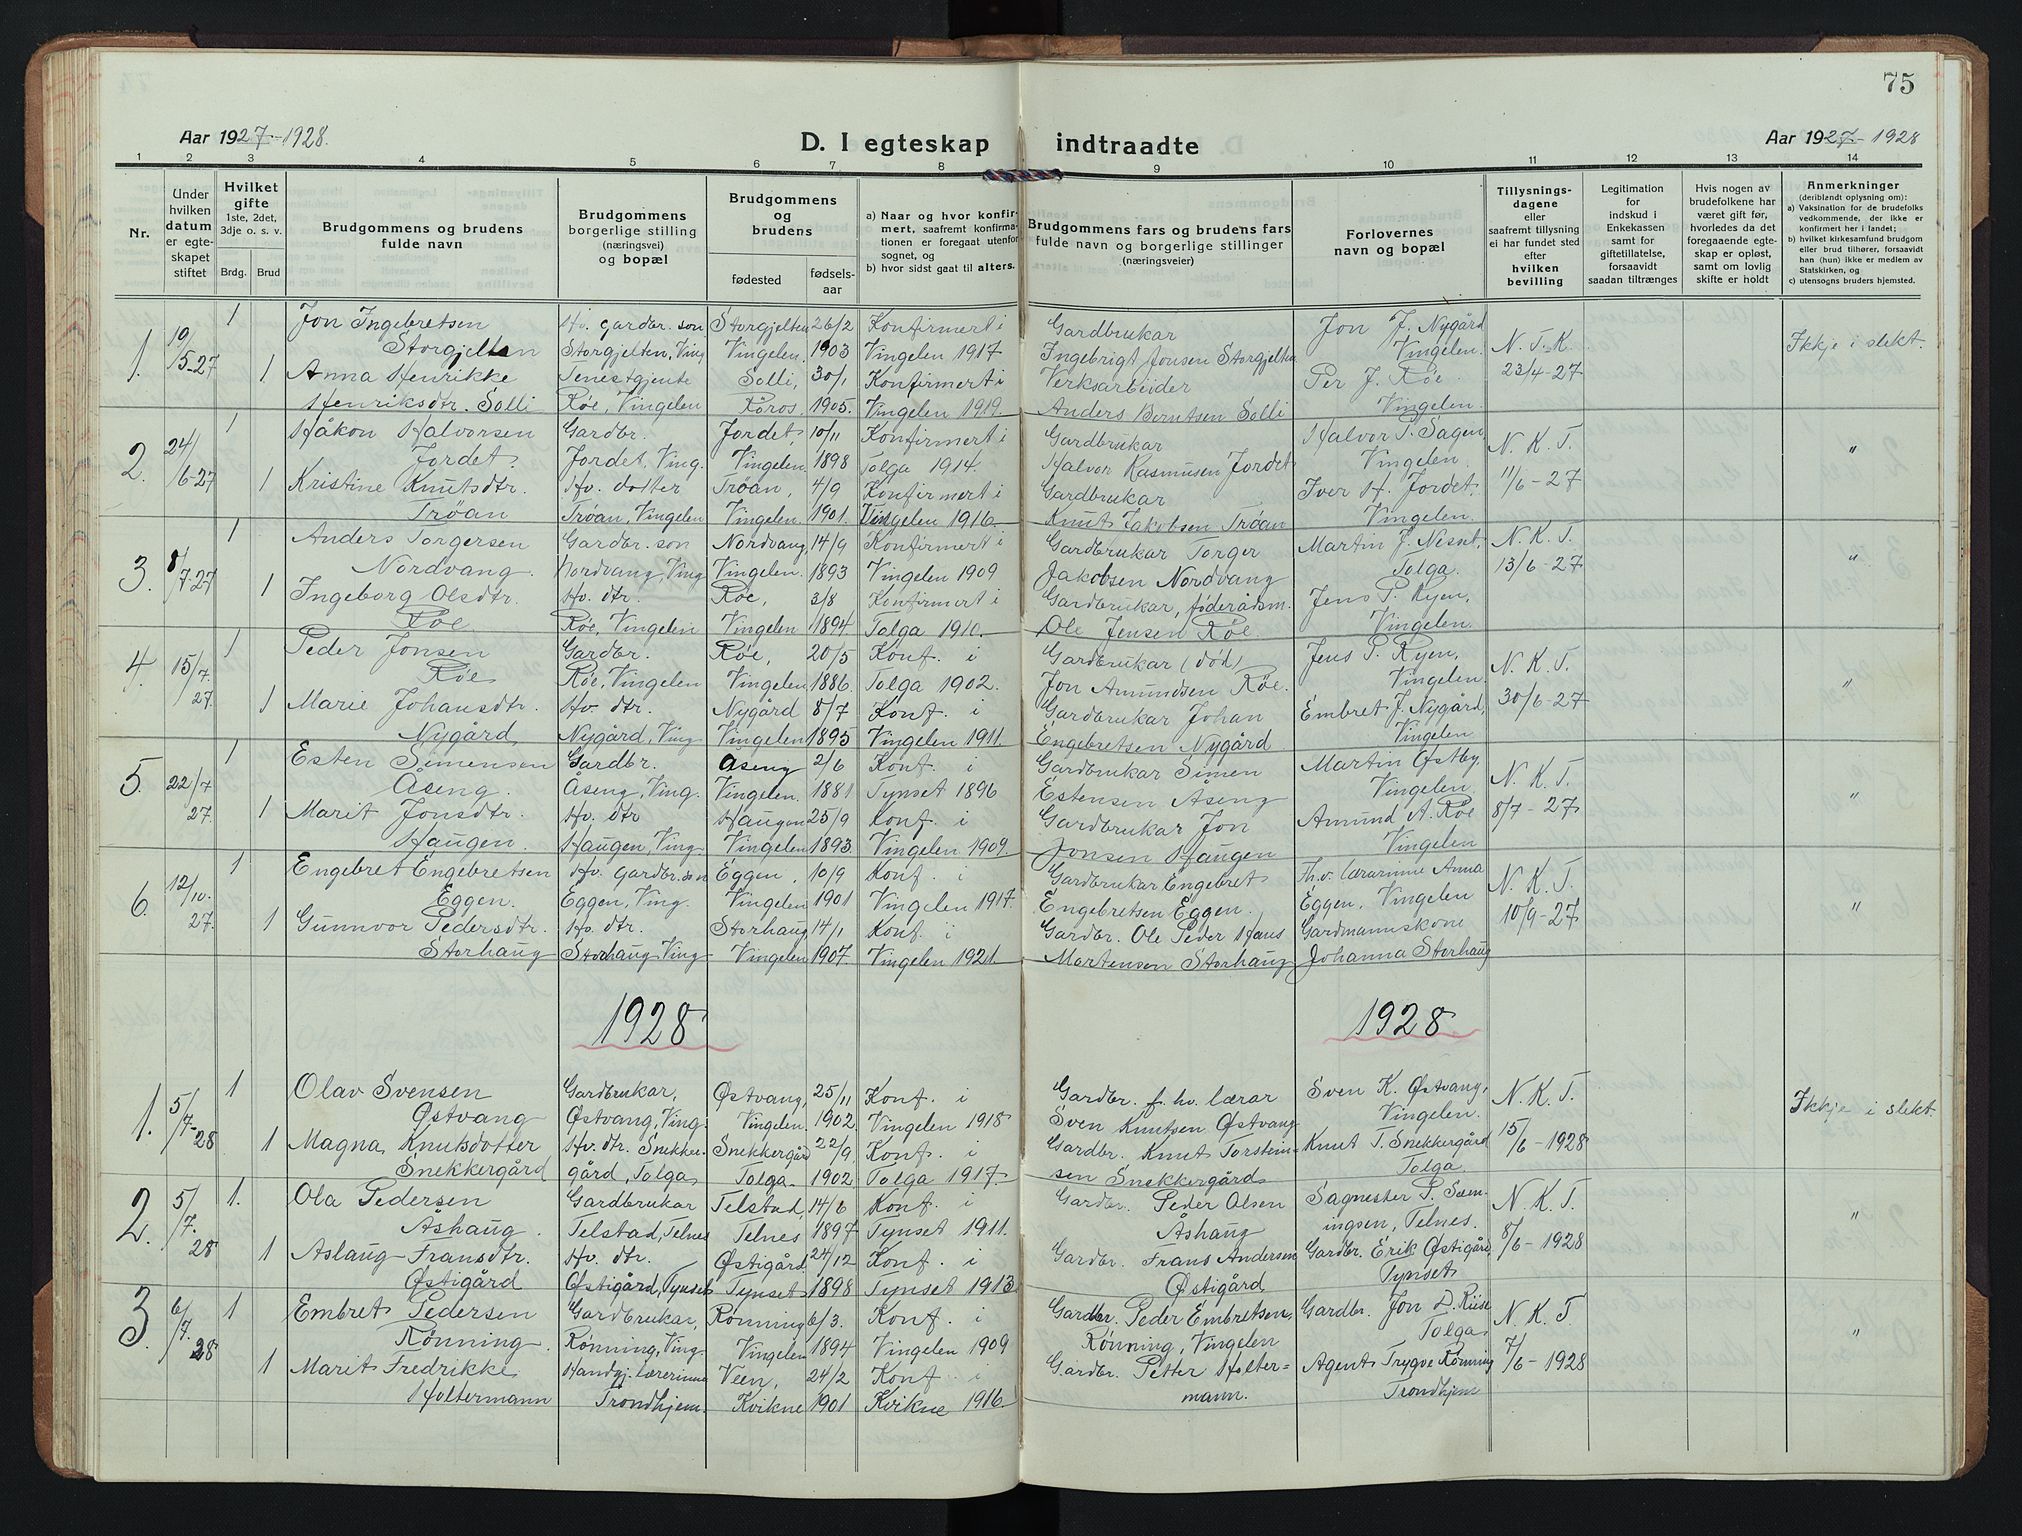 75
Aar 1927-1928.
D. I egteskap indtraadte
Aar 1927-1928
1 2 3 4 5 6 7 8 9 10 11 12 13 14
Nr.
Under hvilken datum er egteskapet stiftet
Hvilket gifte
1ste, 2det, 3dje o. s. v.
Brdg. Brud
Brudgommens og brudens fulde navn
Brudgommens borgerlige stilling (næringsvei) og bopæl
Brudgommens og brudens
fødested
fødselsaar
a) Naar og hvor konfirmert, saafremt konfirmationen er foregaat utenfor sognet, og
b) hvor sidst gaat til alters.
Brudgommens fars og brudens fars fulde navn og borgerlige stillinger (næringsveier)
Forlovernes navn og bopæl
Tillysningsdagene eller saafremt tillysning ei har fundet sted efter hvilken bevilling
Legitimation for indskud i Enkekassen samt for giftetillatelse, forsaavidt saadan tiltrænges
Hvis nogen av brudefolkene har været gift før, hvorledes da det foregaaende egteskap er opløst, samt om lovlig skifte er holdt
Anmerkninger (deriblandt oplysning om):
a) Vaksination for de brudefolks vedkommende, der ikke er konfirmert her i landet;
b) hvilket kirkesamfund brudgom eller brud tilhører, forsaavidt han (hun) ikke er medlem av Statskirken, og
c) utensogns bruders hjemsted.
1. 19/5-27 1 Jon Ingebretsen Storgjelten Hv. gardbr. son Storgjelten, Ving Storgjelten Vingelen. 26/2 1903 Konfirmert i Vingelen 1917 Gardbrukar Ingebrigt Jonsen Storgjelten Jon J. Nygård Vingelen. N. T. K. 23/4-27 Ikkje i slekt.
1 Anna Henrikke Henriksdtr. Solli Tenestgjente Røe, Vingelen Solli, Røros, 30/1 1905. Konfirmert i Vingelen 1919. Verksarbeider Anders Berntsen Solli Per J. Røe. Vingelen.
2. 24/6-27 1 Håkon Halvorsen Jordet. Gardbr. Jordet, Ving. Jordet, Vingelen 10/11 1898 Konfirmert i Tolga 1914. Gardbrukar Halvor Rasmusen Jordet Halvor P. Sagen Vingelen. N. K. T. 11/6-27 "
1 Kristine Knutsdtr. Trøan Hv. dotter Trøan, Vingelen Trøan, Vingelen. 4/9 1901. Konfirmert i Vingelen 1916. Gardbrukar Knut Jakobsen Trøan Iver H. Jordet, Vingelen.
3. 8/7-27 1 Anders Torgersen Nordvang. Gardbr. son Nordvang, Ving Nordvang, Vingelen. 14/9 1893 Konfirmert i Vingelen 1909 Gardbrukar Torger Jakobsen Nordvang Martin J. Nesset, Tolga. N. K. T. 13/6-27 "
1 Ingeborg Olsdtr. Røe Hv. dtr. Røe, Vingelen Røe, Vingelen 3/8 1894. Konfirmert i Tolga 1910. Gardbrukar, føderådsm. Ole Jensen Røe. Jens P. Ryen, Vingelen.
4. 15/7. 27. 1 Peder Jonsen Røe Gardbr. Røe, Vingelen Røe, Vingelen 20/5 1886. Konf. i Tolga 1902. Gardbrukar (død) Jon Amundsen Røe. Jens P. Ryen, Vingelen. N. K. T. 30/6-27 "
1 Marie Johansdtr. Nygård Hv. dtr. Nygård, Ving Nygård Vingelen 8/7 1895 Konf. i Vingelen 1911. Gardbrukar Johan Engebretsen Nygård Embret J. Nygård, Vingelen
5. 22/7 27. 1 Esten Simensen Åseng. Gardbr. Åseng, Ving. Åseng Vingelen. 2/6 1881 Konf. i Tynset 1896 Gardbrukar Simen Estensen Åseng Martin Østby. Vingelen. N. K. T. 8/7-27 "
1 Marit Jonsdtr. Haugen. Hv. dtr Haugen, Ving Haugen Vingelen 25/9 1893. Konf. i Vingelen 1909. Gardbrukar Jon Jonsen Haugen Amund A. Røe Vingelen
6. 12/10. 27. 1 Engebret Engebretsen Eggen. Hv. gardbr. son Eggen, Ving. Eggen, Vingelen 10/9 1901 Konf. i Vingelen 1917. Gardbrukar Engebret Engebretsen Eggen. Fh.v. lærarinne Anna Eggen, Vingelen N. K. T. 10/9-27 "
1 Gunnvor Pedersdtr. Storhaug Hv. dtr. Storhaug Ving Storhaug Vingelen 14/1 1907. Konf. i Vingelen 1921. Gardbr. Ole Peder Hans Martensen Storhaug Gardmannskone Johanna Storhaug
1928 1928
1. 5/7-28 1 Olav Svensen Østvang Gardbrukar, Østvang, Ving. Østvang, Vingelen. 25/11 1902. Konf. i Vingelen 1918 Gardbr. f. hv. lærar Sven Knutsen Østvang Sven K. Østvang, Vingelen. N. K. T. 15/6-1928 Ikkje i slekt
1 Magna Knutsdotter Snekkergård Hv. dtr. Snekkergård, Tolga Snekkergård Tolga. 22/9 1902 Konf. i Tolga 1917. Gardbr. Knut Torsteinsen Snekkergård Knut T. Snekkergård Tolga
2. 5/7. 28 1. Ola Pedersen Åshaug. Gardbrukar Telstad, Telnes Telstad, Telnes 14/6 1897 Konf. i Tynset 1911. Gardbr. Peder Olsen Åshaug Sagmester P. Sæmingsen, Telnes. N. K. T. 8/6-1928 "
1 Aslaug Fransdtr. Østigård Hv. dtr. Østigård, Tynset Østigård Tynset 24/12 1898 Konf. i Tynset 1913 Gardbr. Frans Andersen Østigård Gardbr. Erik Østigård, Tynset
3. 6/7. 28 1 Embret Pedersen Rønning. Gardbrukar, Rønning, Ving. Rønning Vingelen 6/3. 1894 Konf. i Vingelen 1909 Gardbr. Peder Embretsen, Rønning, Vingelen Gardbr. Jon D. Riise Tolga N. K. T 7/6-1928 "
1 Marit Fredrikke Holtermann Handgj. lærerinne Trondhjem. Veen, Kvikne 24/2 1901 Konf. i Kvikne 1916 Gardbr. Petter Holtermann. Agent Trygve Rønning Trondhjem